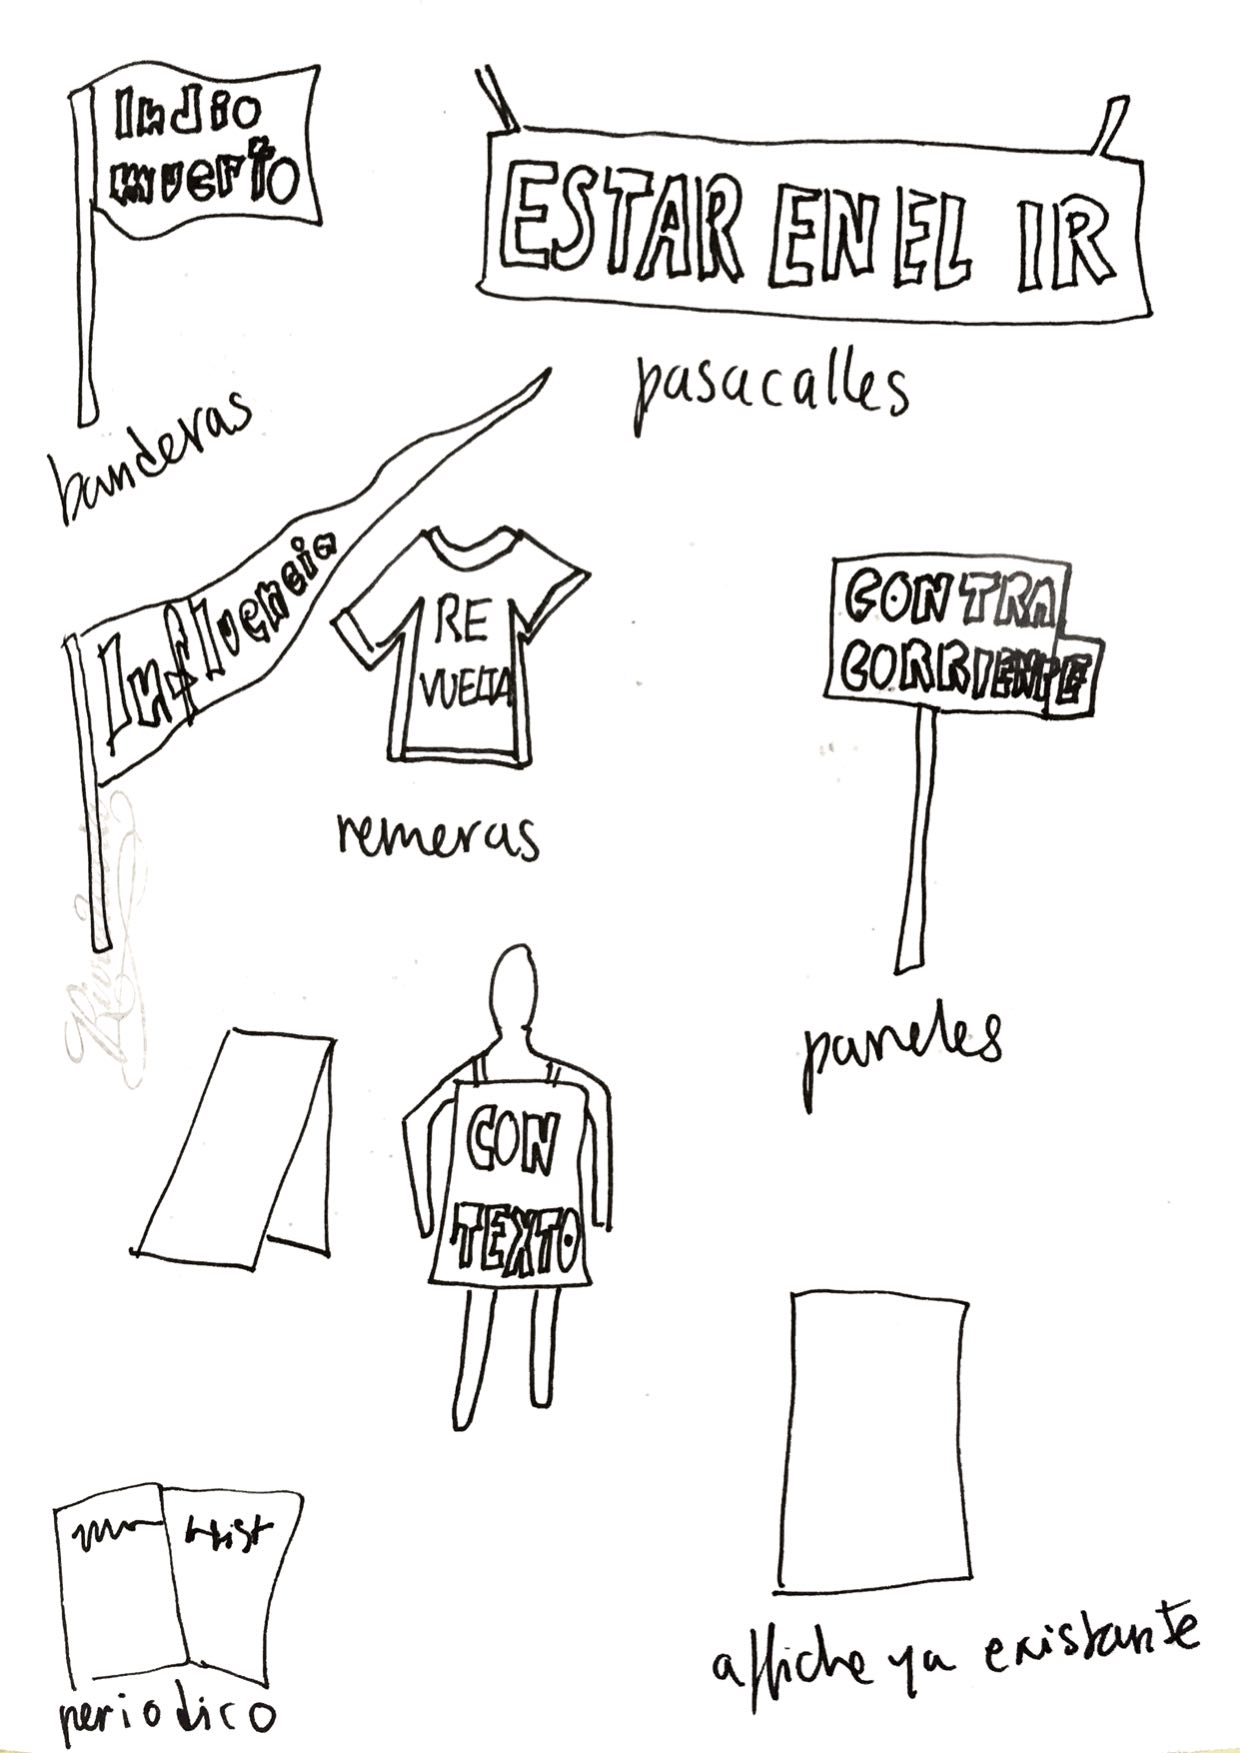 Indio
muerto
ESTAR EN EL IR
pasacalles
banderas
Influencia
RE
VUELTA
CONTRA
CORRIENTE
remeras
paneles
CON
TEXTO
affiche ya existante
periodico